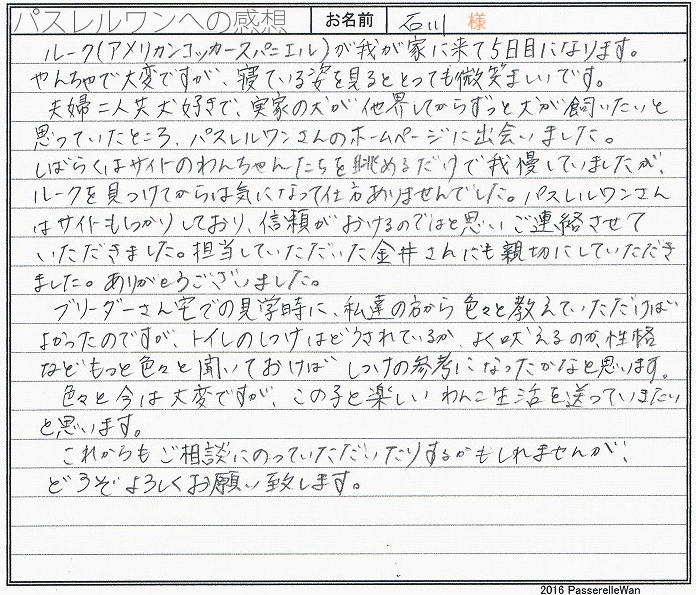 パスレルワンへの感想 お名前 石川 様
ルーク(アメリカンコッカースパニエル)が我が家に来て5日目になります。
やんちゃで大変ですが、寝ている姿を見るととっても微笑ましいです。
夫婦二人共犬好きで、実家の犬が他界してからずっと犬が飼いたいと
思っていたところ、パスレルワンさんのホームページに出会いました。
しばらくはサイトのわんちゃんたちを眺めるだけで我慢していましたが、
ルークを見つけてからは気になって仕方ありませんでした。パスレルワンさん
はサイトもしっかりしており、信頼がおけるのではと思いご連絡させて
いただきました。担当していただいた金井さんにも親切にしていただき
ました。ありがとうございました。
ブリーダーさん宅での見学時に、私達の方から色々と教えていただけば
よかったのですが、トイレのしつけはどうされているか、よく吠えるのか、性格
などもっと色々と聞いておけば しつけの参考になったかなと思います。
色々と今は大変ですが、この子と楽しい わんこ生活を送っていきたい
と思います。
これからもご相談にのっていただいたりするかもしれませんが、
どうぞよろしくお願い致します。
2016 PasserelleWan